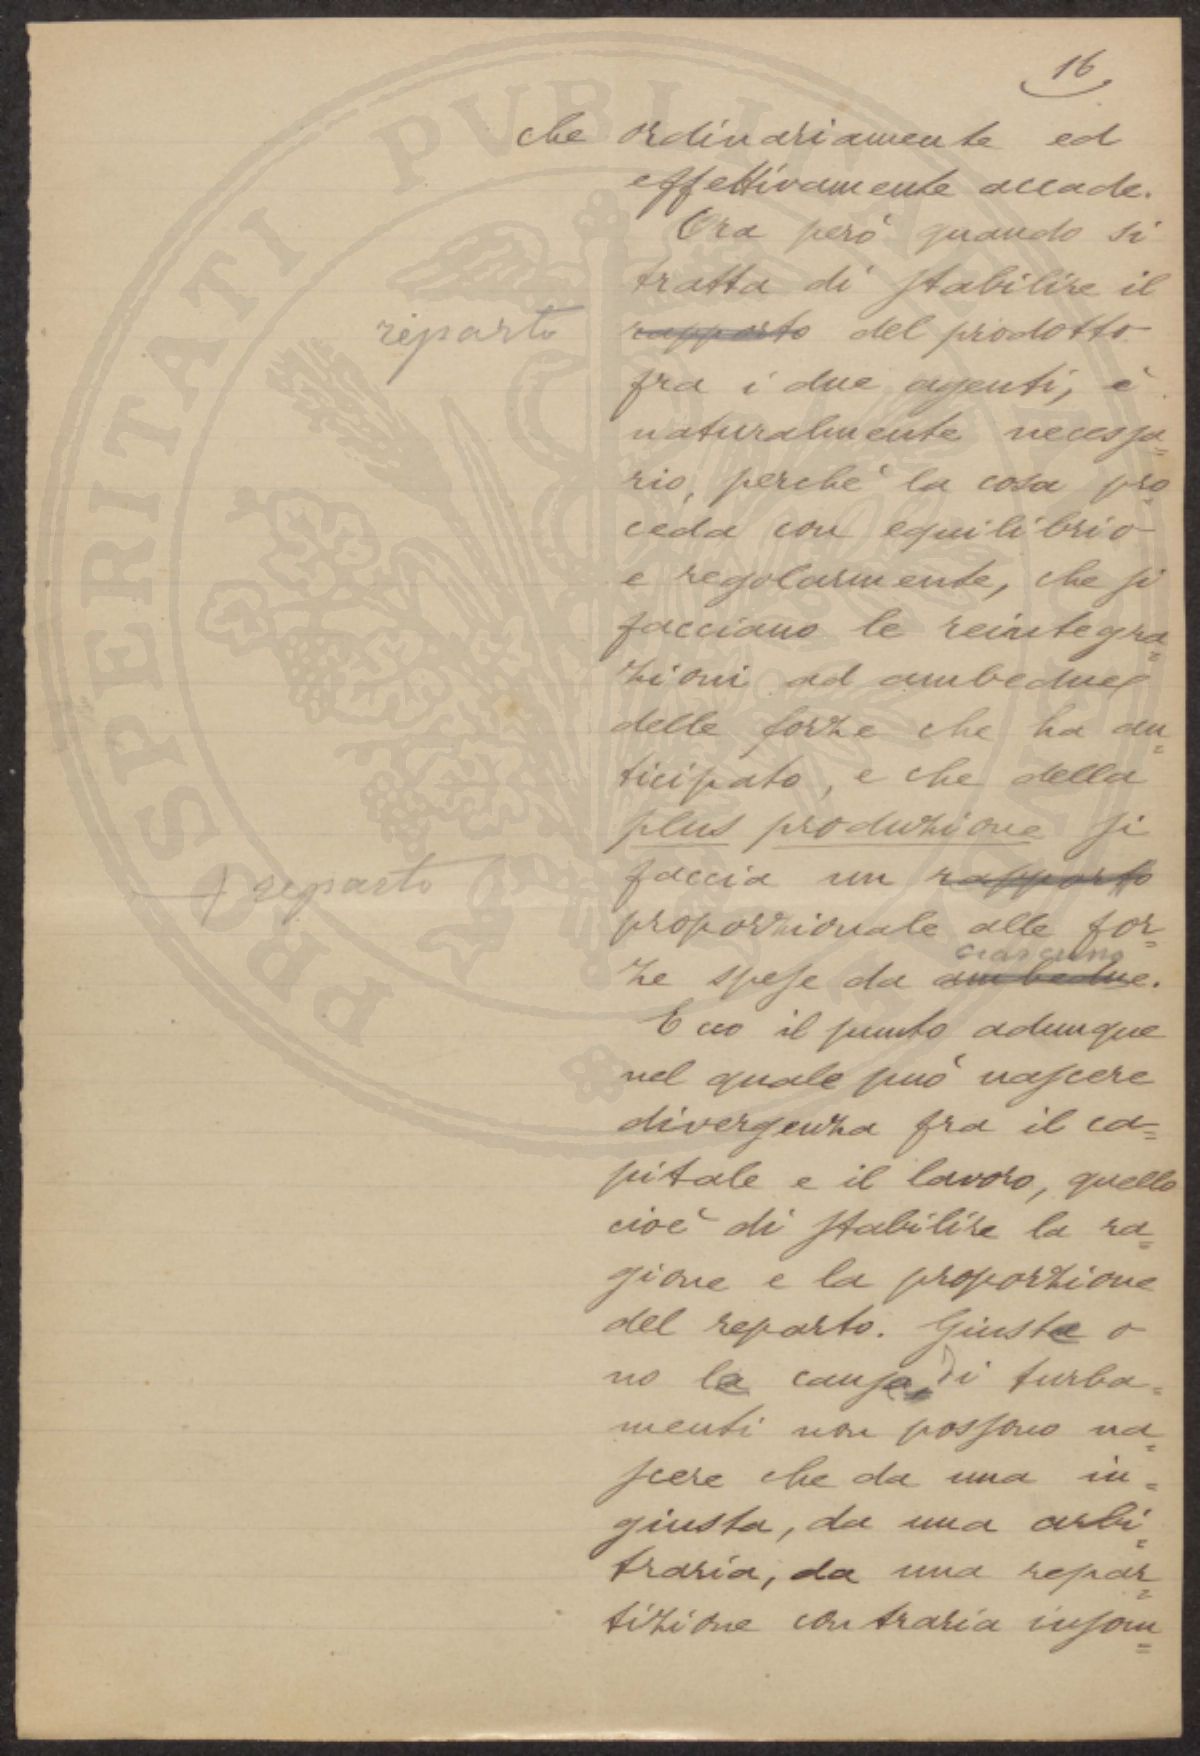 16
che ordinariamente ed
effettivamente accade.
Ora però quando si
tratta di stabilire il
reparto rapporto del prodotto
fra i due agenti, è
naturalmente necessa=
rio, perchè la cosa pro=
ceda con equilibrio
e regolarmente, che si
facciano le reintegra=
zioni ad ambedue
delle forze che ha an=
ticipato, e che della
plus produzione si
reparto faccia un rapporto
proporzionale alle for=
ciascuno
ze spese da ambedue.
Ecco il punto adunque
nel quale può nascere
divergenza fra il ca=
pitale e il lavoro, quello
cioè di stabilire la ra=
gione e la proporzione
del reparto. Giuste o
no le cause, di turba=
menti non possono na=
scere che da una in=
giusta, da una arbi=
traria, da una repar=
tizione contraria insom=
PROSPERITATI PUBLICAE